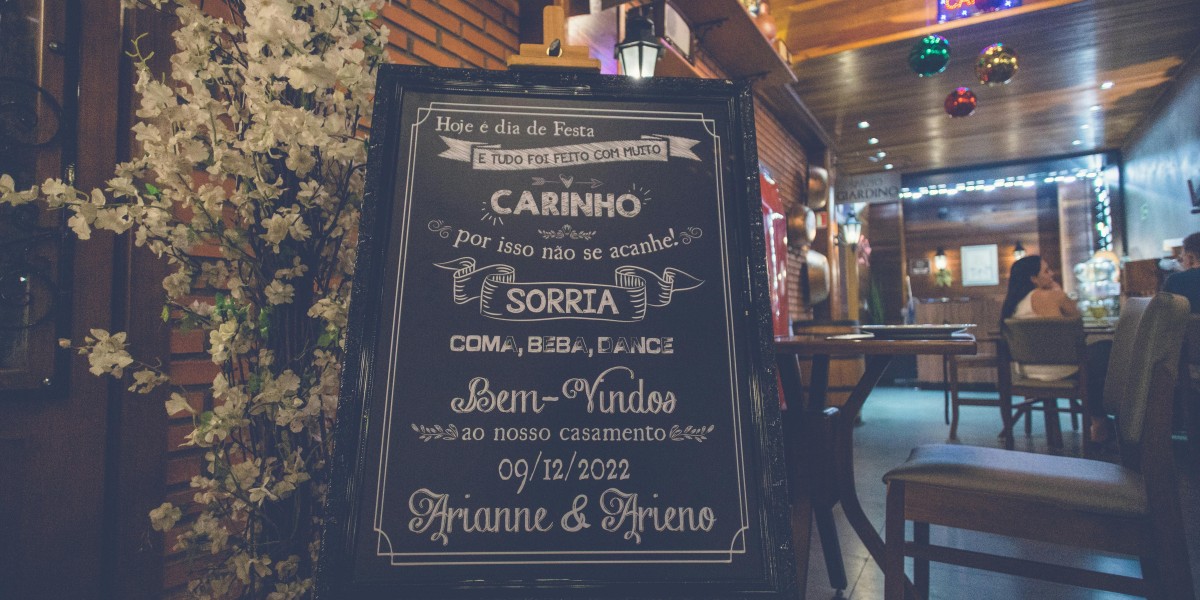 Hoje é dia de Festa
E TUDO FOI FEITO COM MUITO
CARINHO
por isso não se acanhe!
SORRIA
COMA, BEBA, DANCE
Bem-Vindos
ao nosso casamento
09/12/2022
Arianne & Arieno
GIARDINO